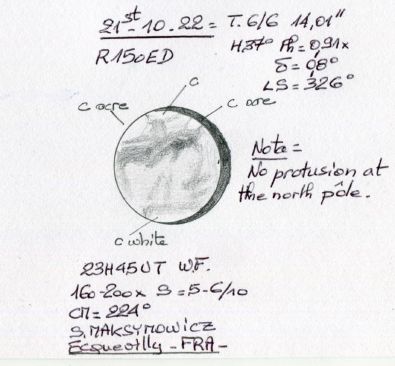 21st-10.22 = T.6/6 14,01"
R150ED
H,37° Ph=0,91x
δ=08°
LS=326°
C
C ocre
C ocre
Note=
No protusion at
the north pôle.
C white
23H45UT W.F.
160-200x S=5-6/10
CM=224°
S.MAKSYMOWICZ
Ecquevilly-FRA-